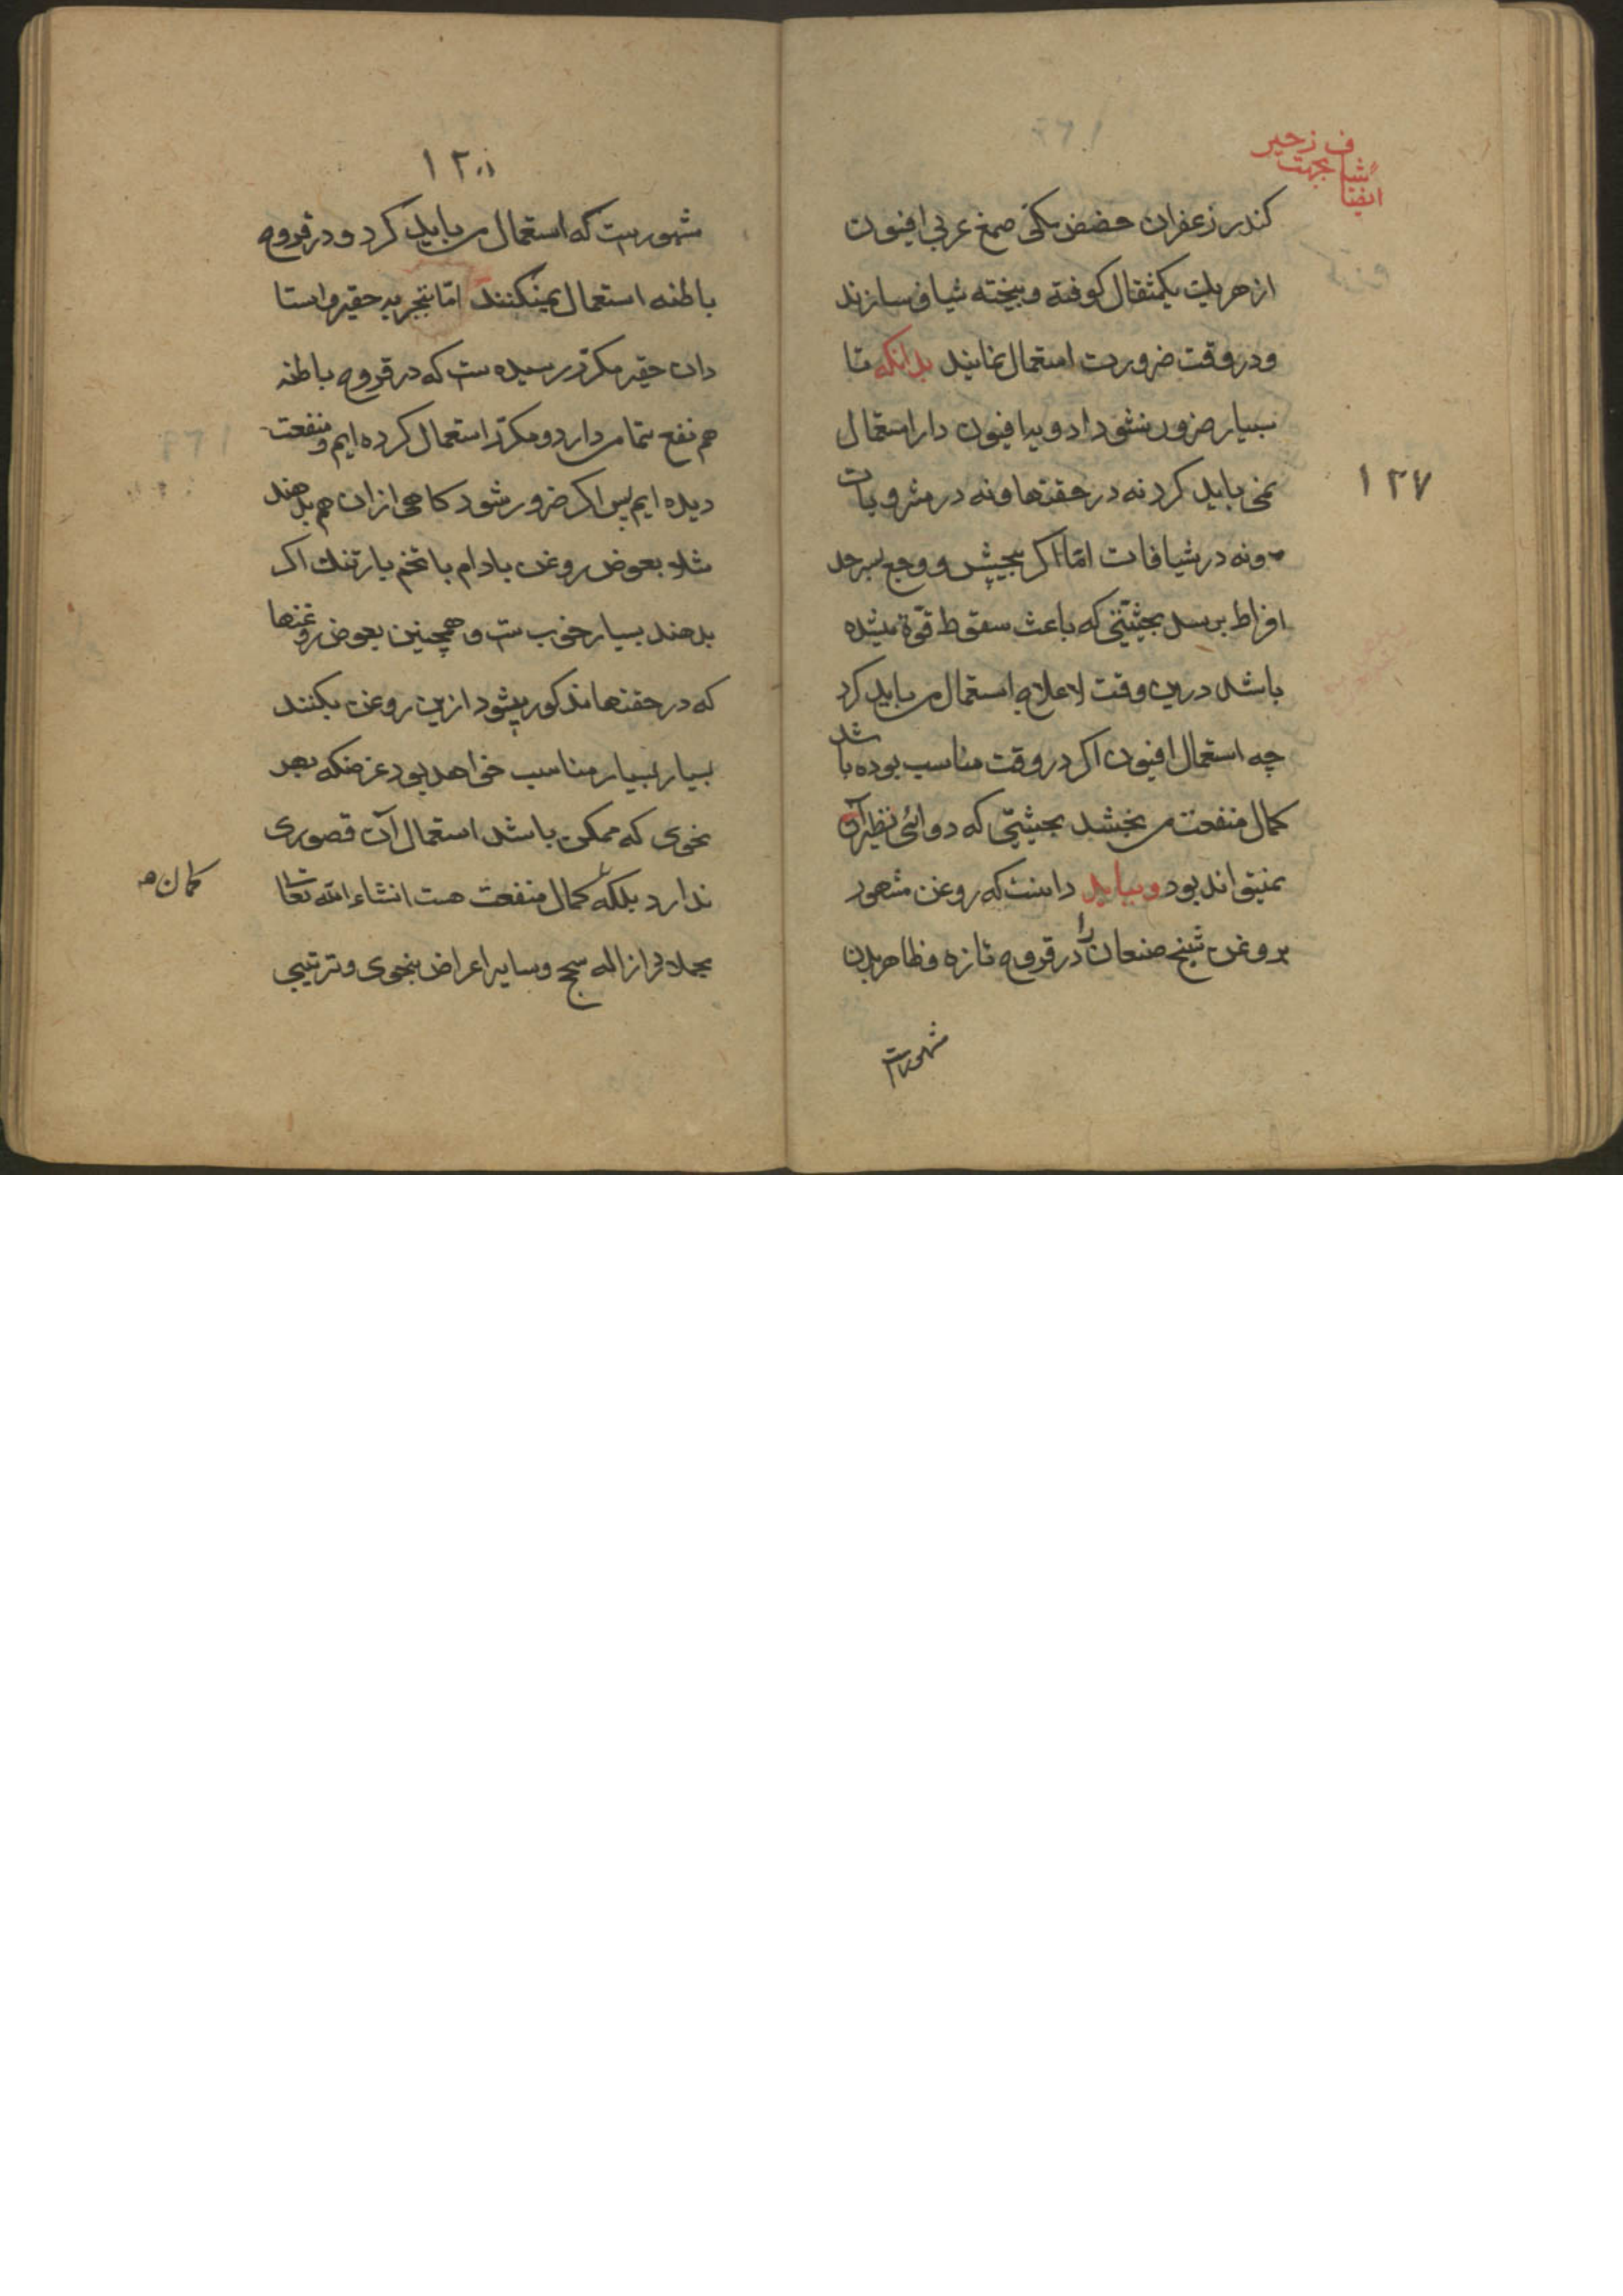 ایضا شاف بجهت زحیر
کندر زعفران حضض مکی صمغ عربی افیون
از هر یک یکمثقال کوفته و بیخته شیاف سازند
و در وقت ضرورت استعمال نمایند بدانکه تا
بسیار ضرور نشود ادویه افیون دار استعمال
نمی باید کرد نه در حقنها و نه در مشروبات
و نه در شیافات اما اگر پیچش و وجع بسر حد
افراط برسد بحیثیتی که باعث سقوط قوة شده
باشد درین وقت لاعلاج استعمال می باید کرد
چه استعمال افیون اکر در وقت مناسب بوده باشد
کمال منفعت می بخشد بحیثیتی که دوائی نظیر آن
نمیتواند بود و بباید دانست که روغن مشهور
بروغن شیخ صنعان را در قروح تازه و ظاهر بدن
مشهورست
۱۲۷
شهورست که استعمال می باید کرد و در قروح
باطنه استعمال نمیکنند اما بتجربه حقیر و استا
دان حقیر مکرر رسیده ست که در قروح باطنه
هم نفع تمام دارد و مکرر استعمال کرده ایم و منفعت
دیده ایم پس اکر ضرور شود کاهی ازان هم بدهند
مثلا بعوض روغن بادام با تخم بارتنك اکر
بدهند بسیار خوب ست و همچنین بعوض روغنها
که در حقنها مذکور میشود ازین روغن بکنند
بسیار بسیار مناسب خواهد بود غرضکه بهر
نحوی که ممکن باشد استعمال آن قصوری
ندارد بلکه کمال منفعت هست انشاء الله تعا
مجملا در ازاله سحج و سایر اعراض بنحوی و ترتیبی